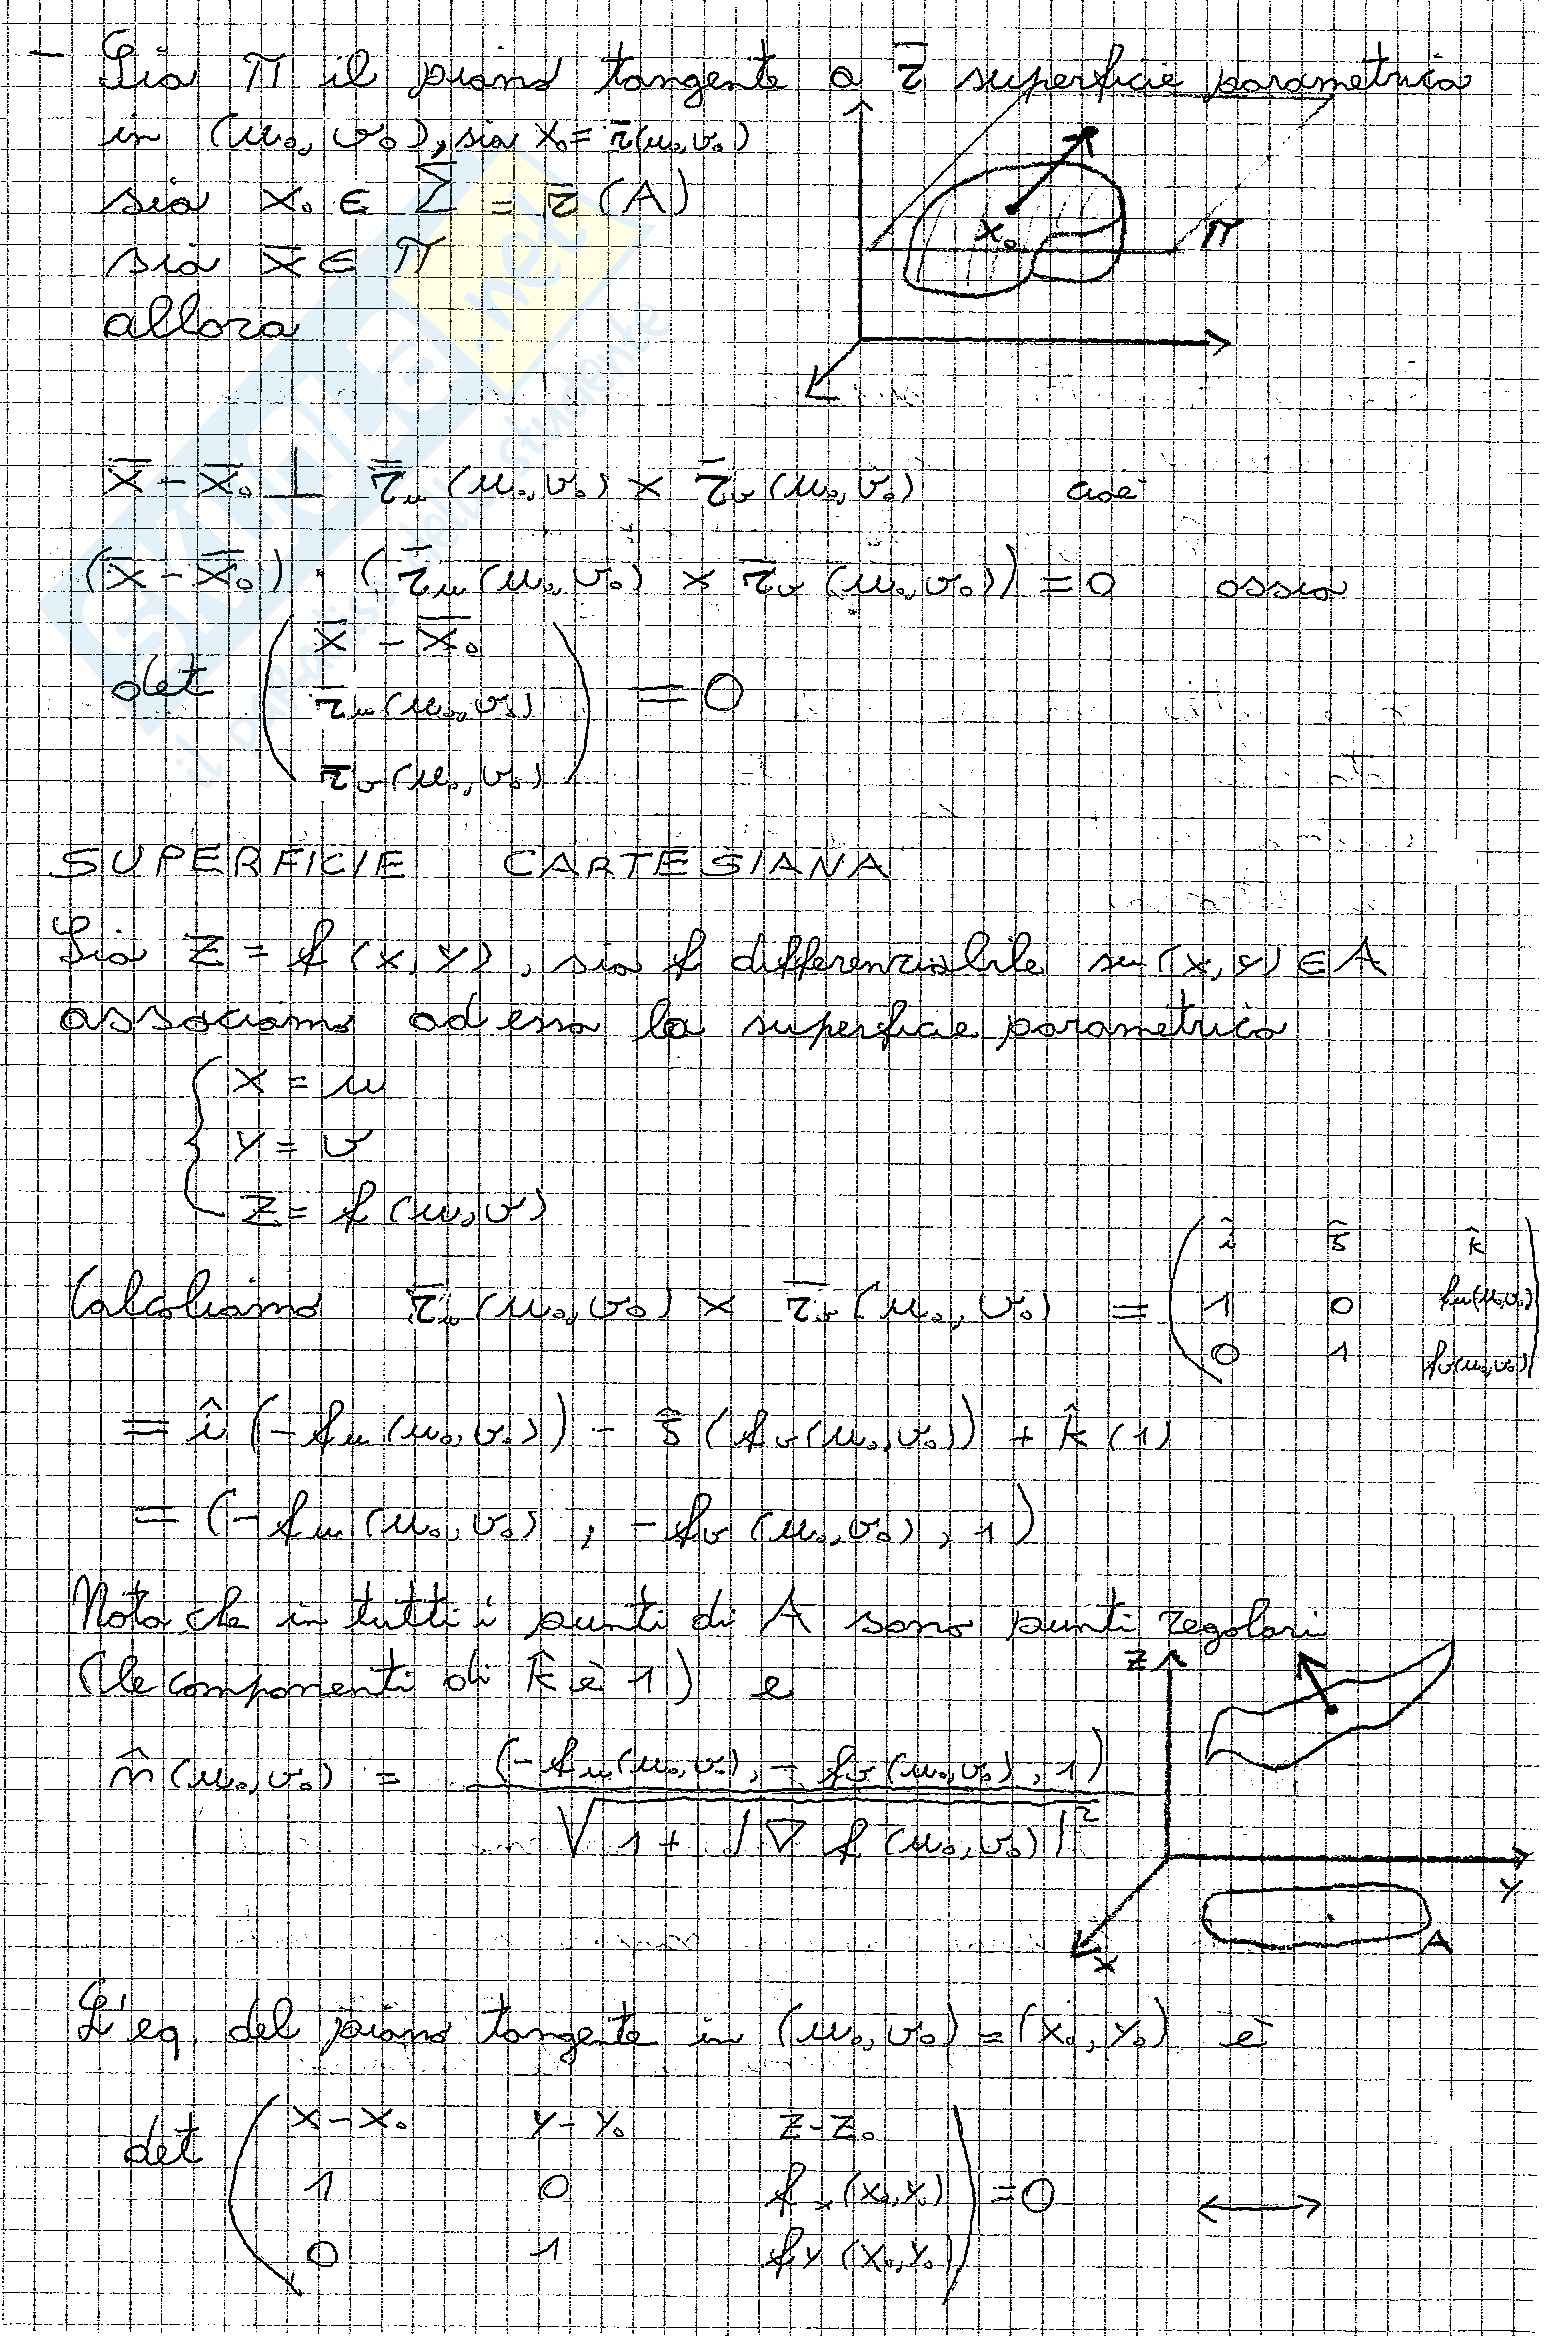 - Sia π il piano tangente a r̄ superficie parametrica
in (u₀, v₀), sia x₀ = r̄(u₀,v₀)
sia x₀ ∈ Σ = r̄(A)
sia x̄ ∈ π
allora
x₀
π
x̄ - x̄₀ ⊥ r̄ᵤ(u₀,v₀) × r̄ᵥ(u₀,v₀) cioè
(x̄ - x̄₀) · (r̄ᵤ(u₀,v₀) × r̄ᵥ(u₀,v₀)) = 0 ossia
det ( x̄ - x̄₀
r̄ᵤ(u₀,v₀)
r̄ᵥ(u₀,v₀) ) = 0
SUPERFICIE CARTESIANA
Sia z = f(x,y), sia f differenziabile su (x,y) ∈ A
associamo ad essa la superficie parametrica
{ x = u
y = v
z = f(u,v)
Calcoliamo r̄ᵤ(u₀,v₀) × r̄ᵥ(u₀,v₀) = ( î ĵ k̂
1 0 fᵤ(u₀,v₀)
0 1 fᵥ(u₀,v₀) )
= î(-fᵤ(u₀,v₀)) - ĵ(fᵥ(u₀,v₀)) + k̂(1)
= (-fᵤ(u₀,v₀), -fᵥ(u₀,v₀), 1)
Nota che in tutti i punti di A sono punti regolari
(le componenti di k̂ è 1) e
n̂(u₀,v₀) = (-fᵤ(u₀,v₀), -fᵥ(u₀,v₀), 1)
√1 + |∇f(u₀,v₀)|²
z
y
x
A
L'eq. del piano tangente in (u₀,v₀) = (x₀,y₀) è
det ( x-x₀ y-y₀ z-z₀
1 0 fₓ(x₀,y₀)
0 1 fy(x₀,y₀) ) = 0 ↔